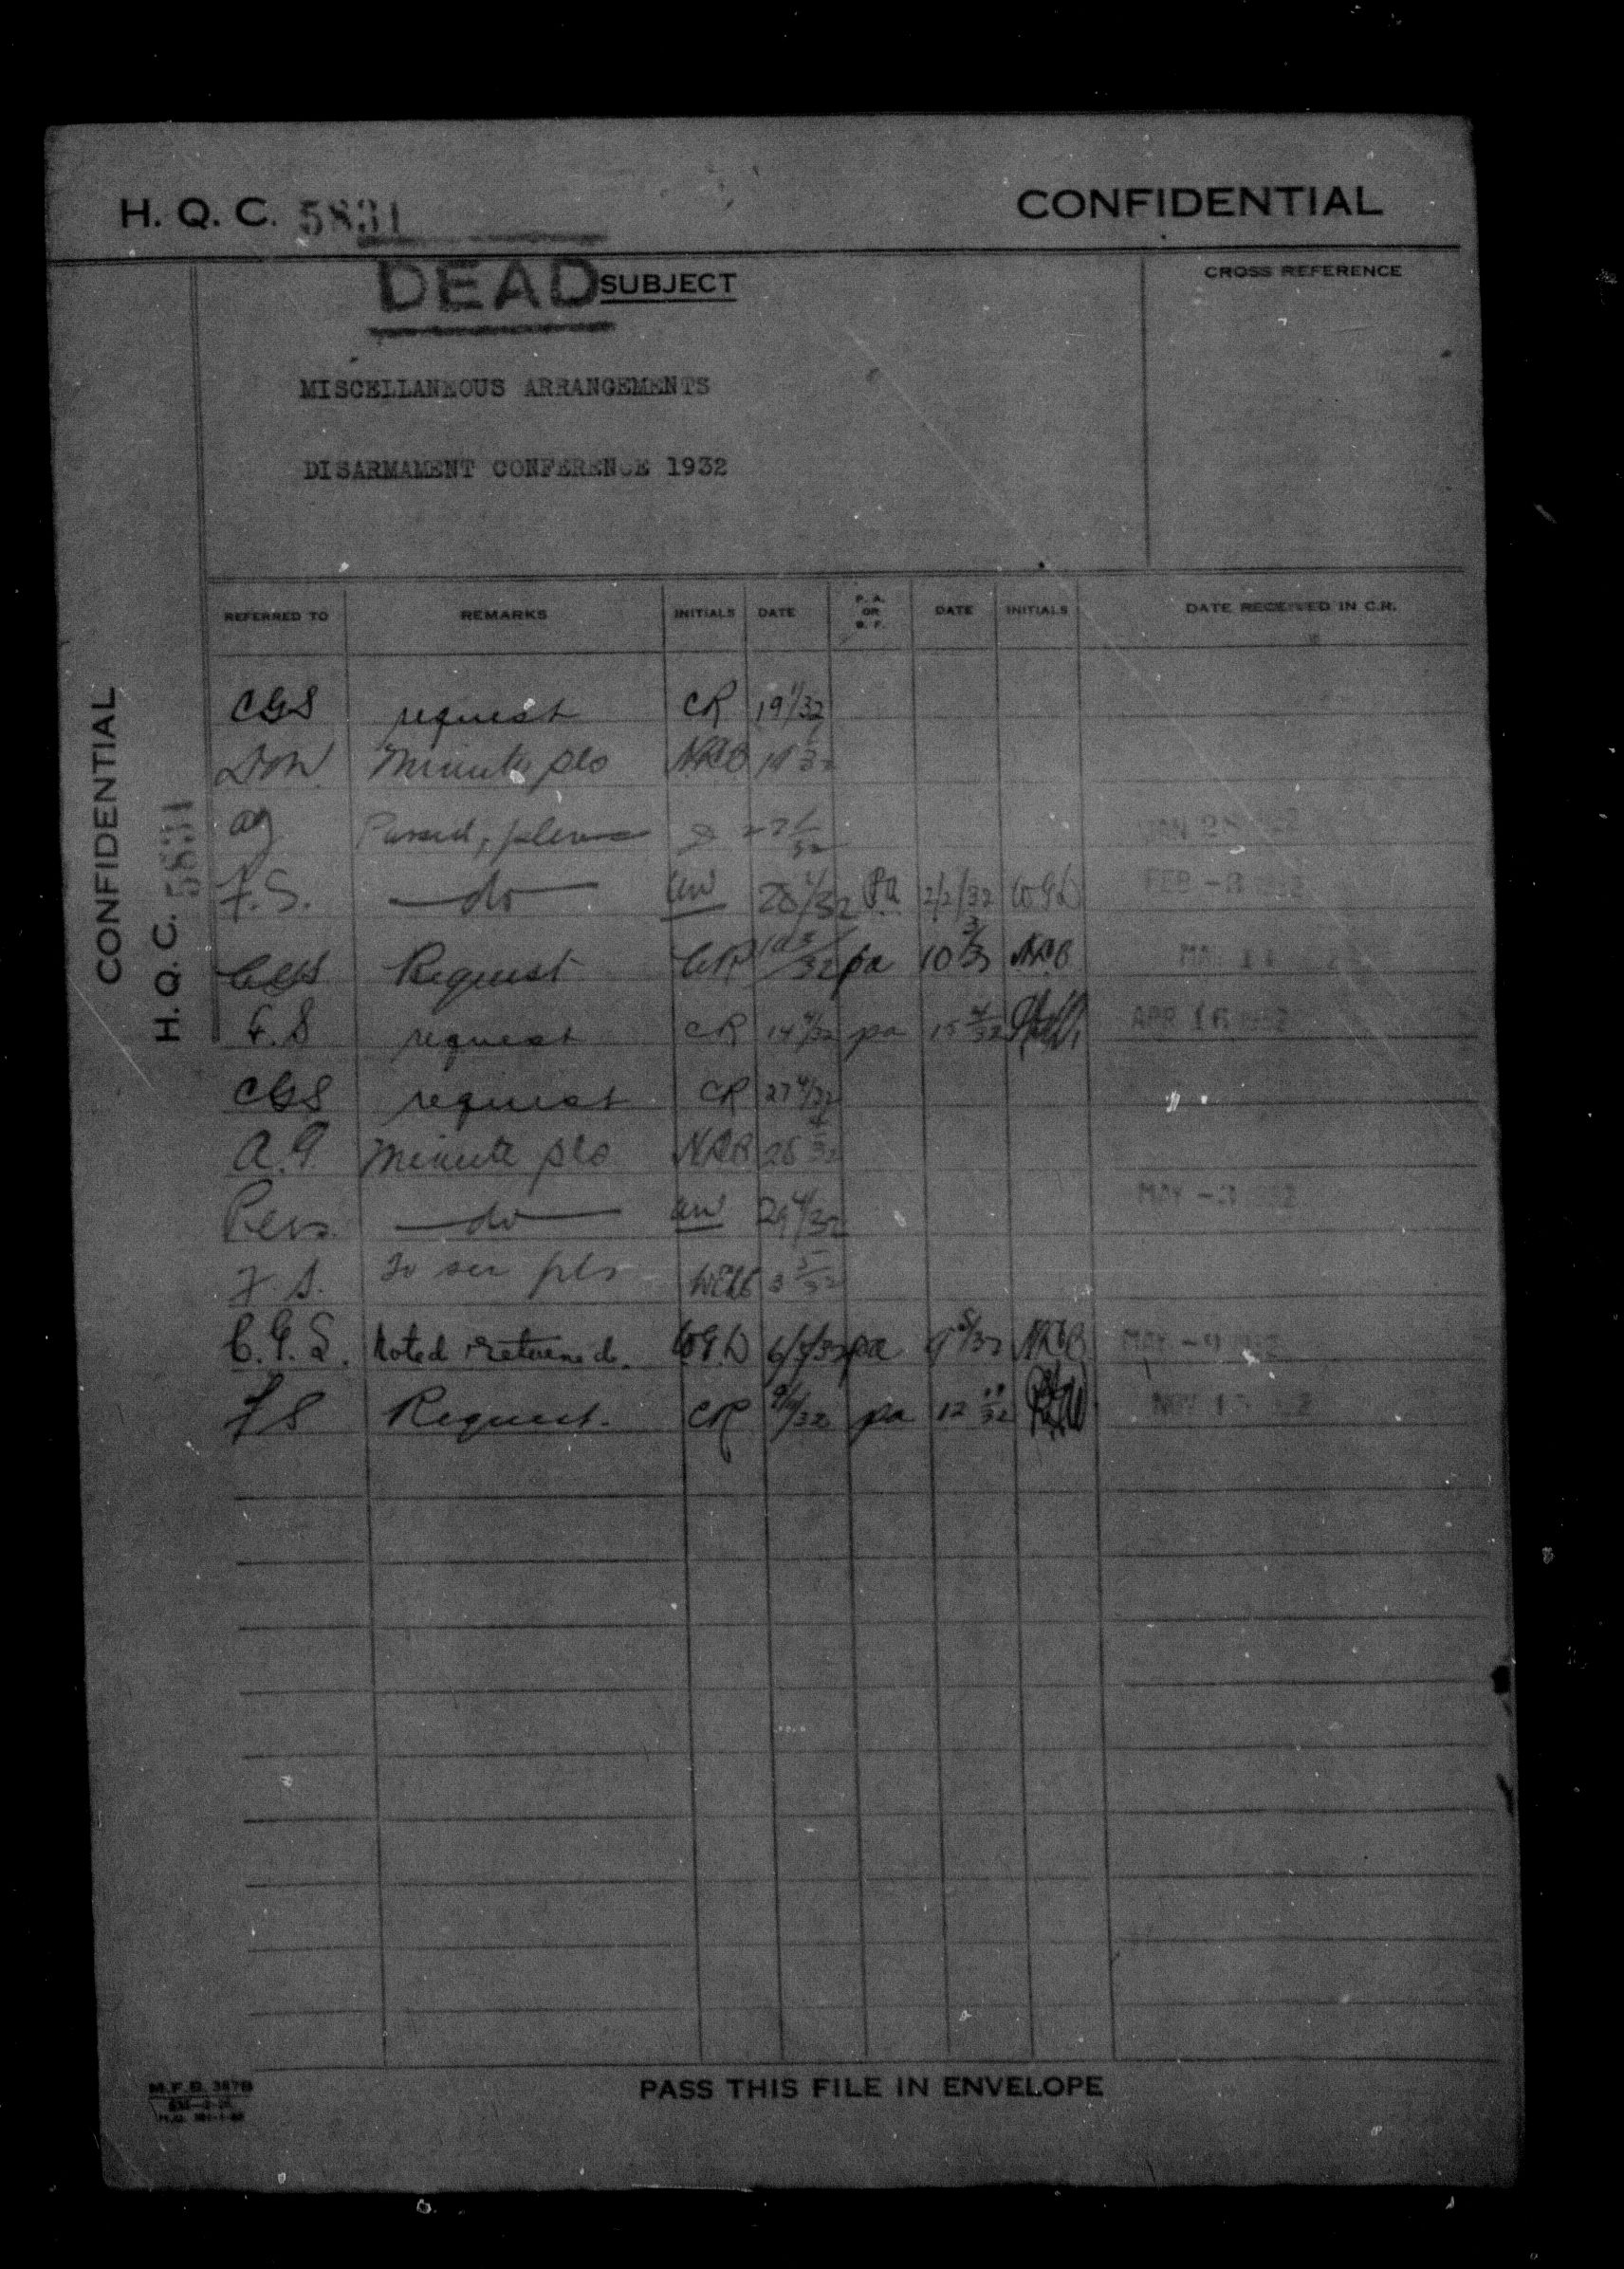 H. Q. C. 5831 CONFIDENTIAL
DEAD SUBJECT CROSS REFERENCE
MISCELLANEOUS ARRANGEMENTS
DISARMAMENT CONFERENCE 1932
CONFIDENTIAL
H. Q. C. 5831
REFERRED TO REMARKS INITIALS DATE P. A. OR B. F. DATE INITIALS DATE RECEIVED IN C.R.
CGS request CR 19 1/32
Minute pls NRB
AG Passed, please 27 1/32 JAN 28
F.S. —do— 28 1/32 PA 2/2/32 WGD FEB
CGS Request CR 10 3/32 pa 10 3/3
F.S request CR 14 4/32 pa 15 4/32 APR 16 1932
CGS request CR 27 4/32
A.G. Minute pls 28 4/32
Pers. —do— 29 4/32 MAY
F.S. To see pls 3 5/32
C.G.S. Noted & returned. WGD 6/5/32 pa 9 5/32 MAY
FS Request. CR pa 12 11/32 NOV
PASS THIS FILE IN ENVELOPE